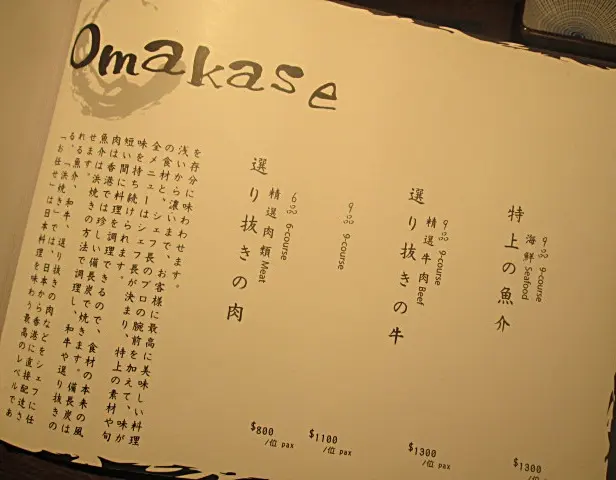 Omakase
「お任せ」は日本料理を味わう最高のレベルであ
る。「浜焼き」では、日本から香港に直接配達さ
れる魚介、和牛、送り抜きの肉などをシェフに任
せます。
魚介は浜焼きの方法で調理し、和牛や送り抜きの
肉は香港では珍しい備長炭で焼きます。備長炭は
短い間に料理を調理できるので、食材の本来の風
味を持ち続けられます。
全メニューはシェフ長が決まり、特上の素材や旬
の食材と、シェフ長のプロの腕前を加えて、味が
浅いから濃いまで、お客様に最高に美味しい料理
を存分に味わわせます。
選り抜きの肉
精選肉類 Meat
6品 6-course
$800 /位 pax
9品 9-course
$1100 /位 pax
選り抜きの牛
精選牛肉 Beef
9品 9-course
$1300 /位 pax
特上の魚介
海鮮 Seafood
9品 9-course
$1300 /位 pax